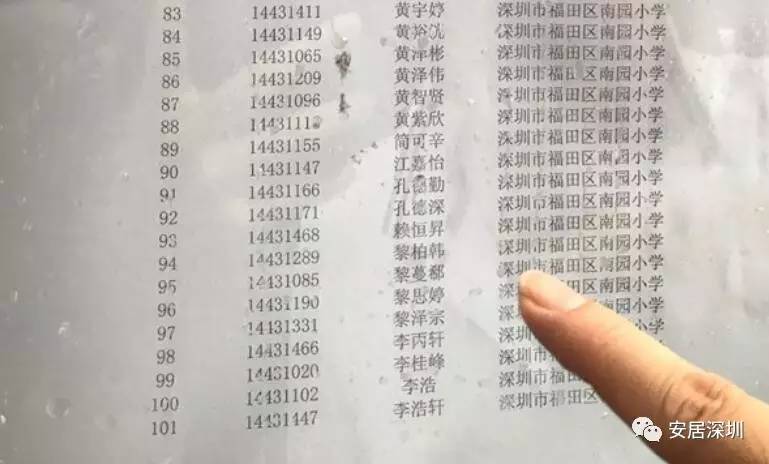 83 14431411 黄宇婷 深圳市福田区南园小学
84 14431149 黄裕 深圳市福田区南园小学
85 14431065 黄泽彬 深圳市福田区南园小学
86 14431209 黄泽伟 深圳市福田区南园小学
87 14431096 黄智贤 深圳市福田区南园小学
88 黄紫欣 深圳市福田区南园小学
89 14431155 简可辛 深圳市福田区南园小学
90 14431147 江嘉怡 深圳市福田区南园小学
91 14431166 孔德勤 深圳市福田区南园小学
92 14431171 孔德深 深圳市福田区南园小学
93 14431468 赖恒昇 深圳市福田区南园小学
94 14431289 黎柏韩 深圳市福田区南园小学
95 14431085 黎蔓郗 深圳市福田区南园小学
96 14431190 黎思婷 深 福田区南园小学
97 14431331 黎泽宗 深圳 小学
98 14431466 李丙轩 深圳市
99 14431020 李桂峰 深圳市福
100 14431102 李浩 深圳市福田
101 14431447 李浩轩 深圳市福田区
安居深圳